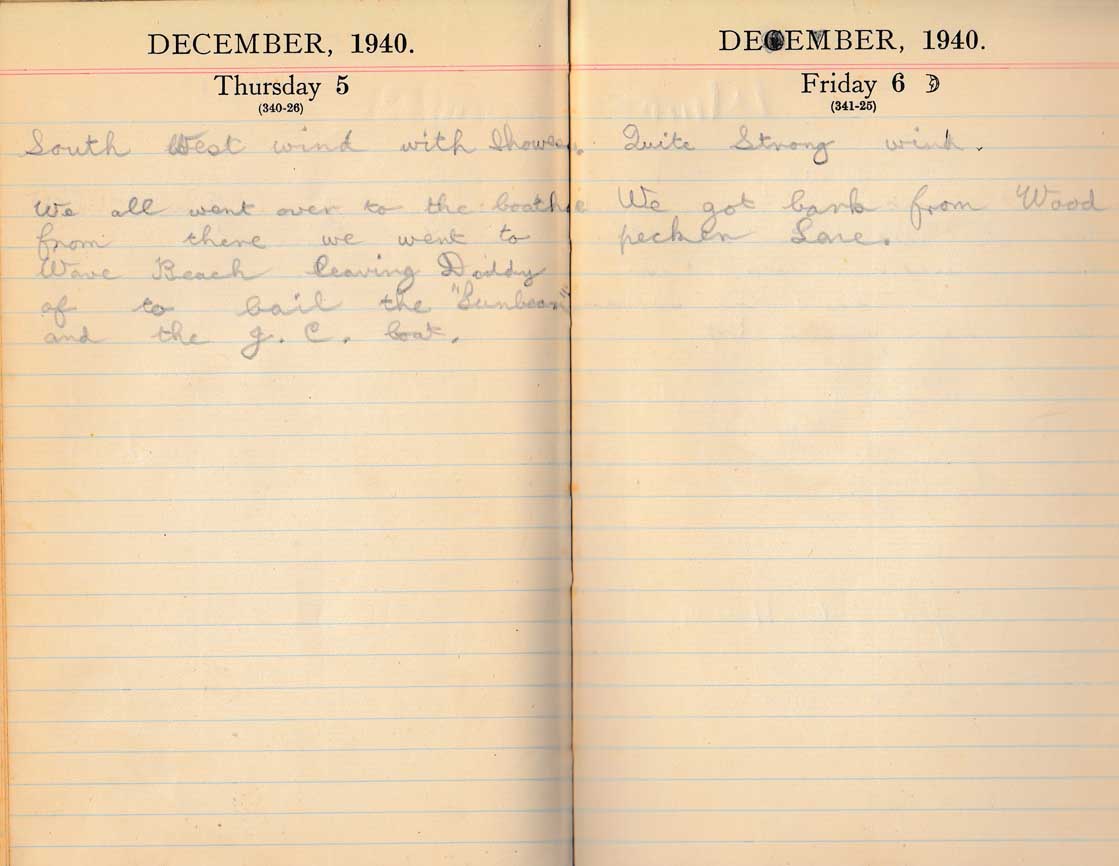 DECEMBER, 1940.
Thursday 5
(340-26)
South West wind with Showes.
We all went over to the boathe
from there we went to
Wave Beach leaving Daddy
of to bail the "Sunbeam"
and the J. C. boat.
DECEMBER, 1940.
Friday 6
(341-25)
Quite Strong wind.
We got bark from Wood
pecker Lane.